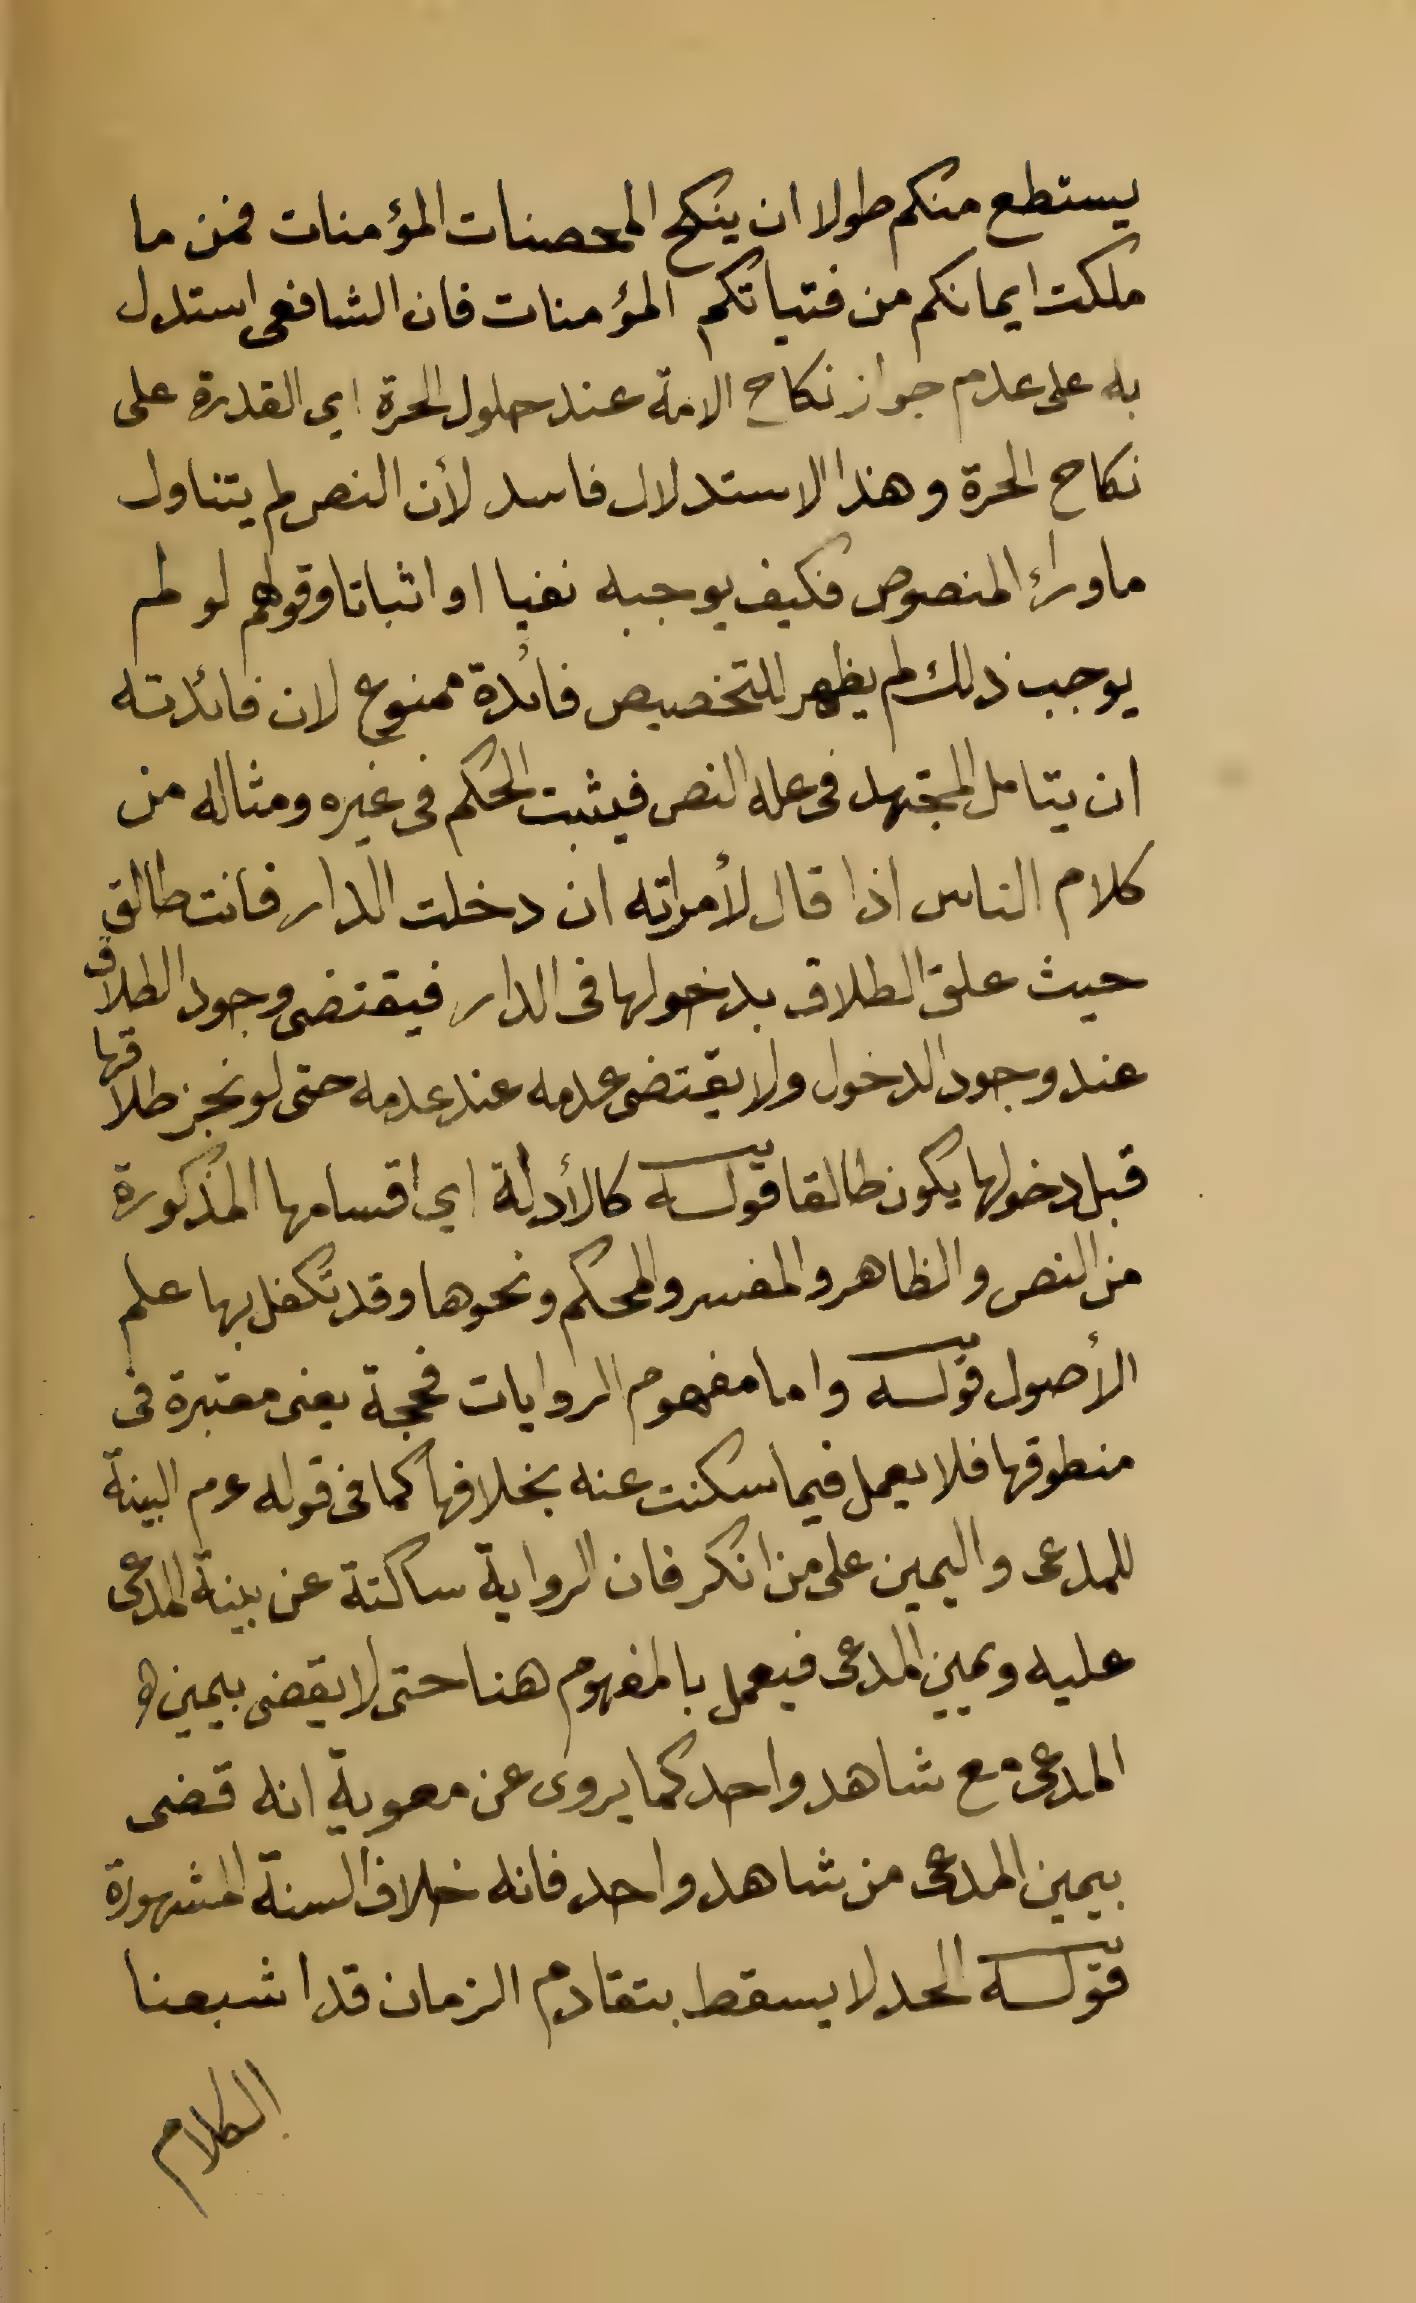 يستطع منكم طولا ان ينكح المحصنات المؤمنات فمن ما
ملكت ايمانكم من فتياتكم المؤمنات فان الشافعى استدل
به على عدم جواز نكاح الامة عند حلول الحرة اي القدرة على
نكاح الحرة وهذا الاستدلال فاسد لأن النص لم يتناول
ماوراء المنصوص فكيف يوجبه نفيا او اثباتا وقولهم لو لم
يوجب ذلك لم يظهر للتخصيص فائدة ممنوع لان فائدته
ان يتامل المجتهد فى عله النص فيثبت الحكم فى غيره ومثاله من
كلام الناس اذا قال لأمراته ان دخلت الدار فانت طالق
حيث علق الطلاق بدخولها فى الدار فيقتضى وجود الطلاق
عند وجود الدخول ولا يقتضى عدمه عند عدمه حتى لو نجز طلاقها
قبل دخولها يكون طالقا قوله كالأدلة اي اقسامها المذكورة
من النص والظاهر والمفسر والمحكم ونحوها وقد تكفل بها علم
الأصول قوله واما مفهوم الروايات فحجة يعنى معتبرة فى
منطوقها فلا يعمل فيما سكنت عنه بخلافها كما فى قوله عم البينة
للمدعى واليمين على من انكر فان الرواية ساكتة عن بينة المدعى
عليه ويمين المدعى فيعمل بالمفهوم هنا حتى لا يقضى بيمين
المدعى مع شاهد واحد كما يروى عن معوية انه قضى
بيمين المدعى من شاهد واحد فانه خلاف السنة المشهورة
قوله الحد لا يسقط بتقادم الزمان قد اشبعنا
الكلام